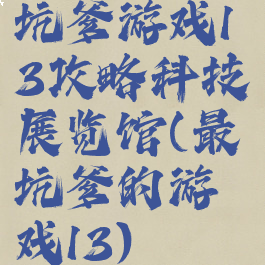 坑爹游戏1
3攻略科技
展览馆(最
坑爹的游
戏13)